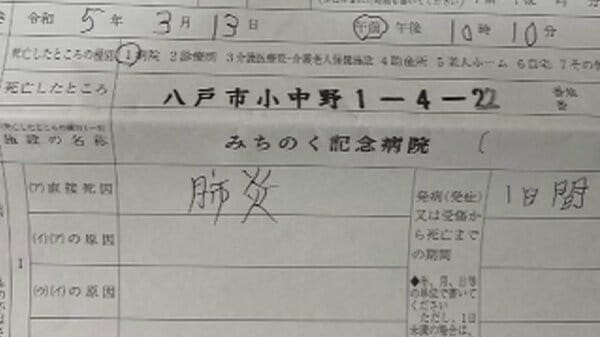 令和 5 年 3 月 13 日 午前 午後 10 時 10 分
死亡したところの種別 1 病院 2 診療所 3 介護医療院・介護老人保健施設 4 助産所 5 老人ホーム 6 自宅 7 その
死亡したところ 八戸市小中野1-4-22 番地 番
(死亡したところの種別1~5)
施設の名称 みちのく記念病院 (
I
(ア)直接死因 肺炎
発病(発症)又は受傷から死亡までの期間 1日間
(イ)(ア)の原因
(ウ)(イ)の原因
◆年、月、日等の単位で書いてください
ただし、1日未満の場合は、